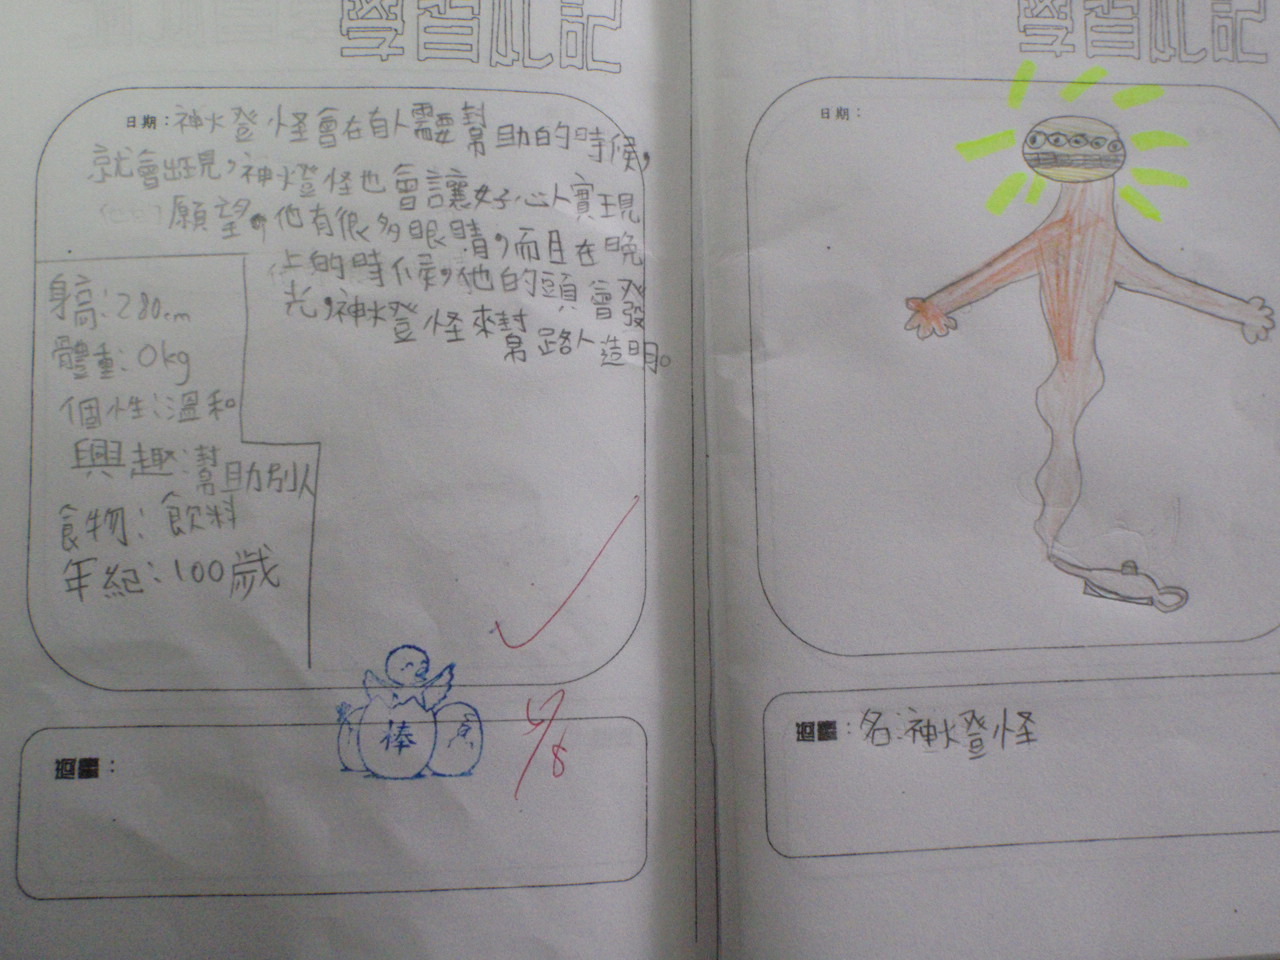 學習札記
日期：神火登怪會在有人需要幫助的時候，
就會出現，神燈怪也會讓好心人實現
願望。他有很多眼睛，而且在晚
上的時候，他的頭會發
光，神燈怪來幫路人造明。
身高：280cm
體重：0kg
個性：溫和
興趣：幫助別人
食物：飲料
年紀：100歲
棒
5/8
迴響：
學習札記
日期：
迴響：名：神燈怪